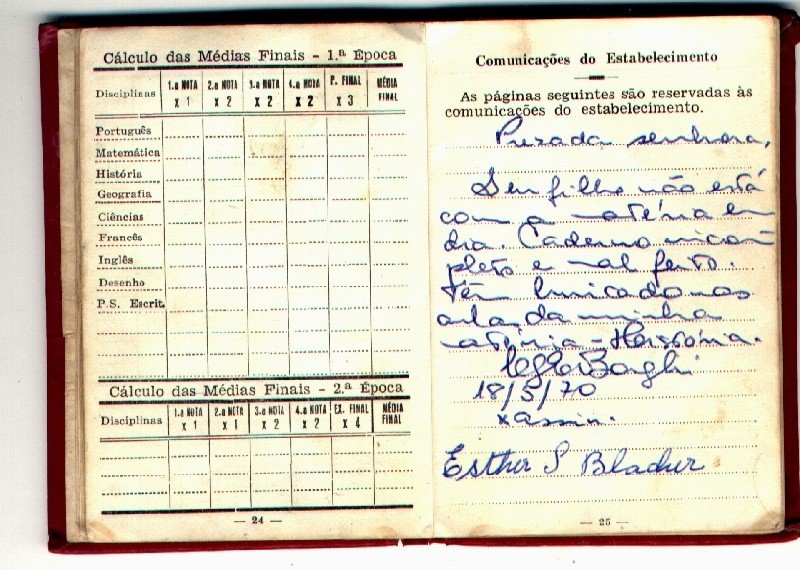 Cálculo das Médias Finais - 1.ª Época
Disciplinas
1.a NOTA x 1
2.a NOTA x 2
3.a NOTA x 2
4.a NOTA x 2
P. FINAL x 3
MÉDIA FINAL
Português
Matemática
História
Geografia
Ciências
Francês
Inglês
Desenho
P.S. Escrit.
Cálculo das Médias Finais - 2.ª Época
Disciplinas
1.a NOTA x 1
2.a NOTA x 1
3.a NOTA x 2
4.a NOTA x 2
EX. FINAL x 4
MÉDIA FINAL
— 24 —
Comunicações do Estabelecimento
As páginas seguintes são reservadas às
comunicações do estabelecimento.
Prezada senhora,
Seu filho não está
com a matéria em
dia. Caderno incom
pleto e mal feito.
Têm brincado nas
aulas da minha
matéria - História.
Borghi
18/5/70
x assin.
Esther S Blacher
— 25 —